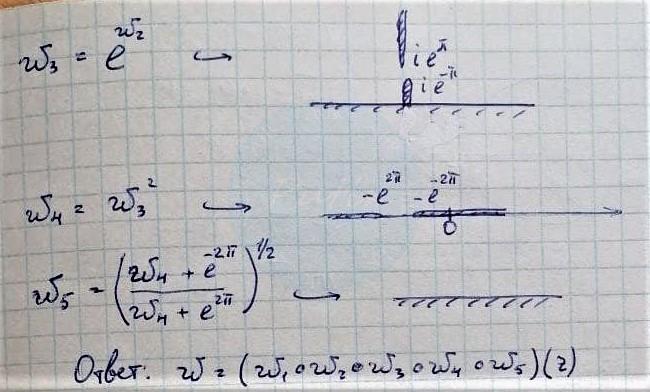 w₃ = e^{w₂} ↪ ie^{π}
ie^{-π}
w₄ = w₃² ↪ -e^{2π} -e^{-2π}
0
w₅ = ((w₄ + e^{-2π})/(w₄ + e^{2π}))^{1/2} ↪
Ответ: w = (w₁∘w₂∘w₃∘w₄∘w₅)(z)